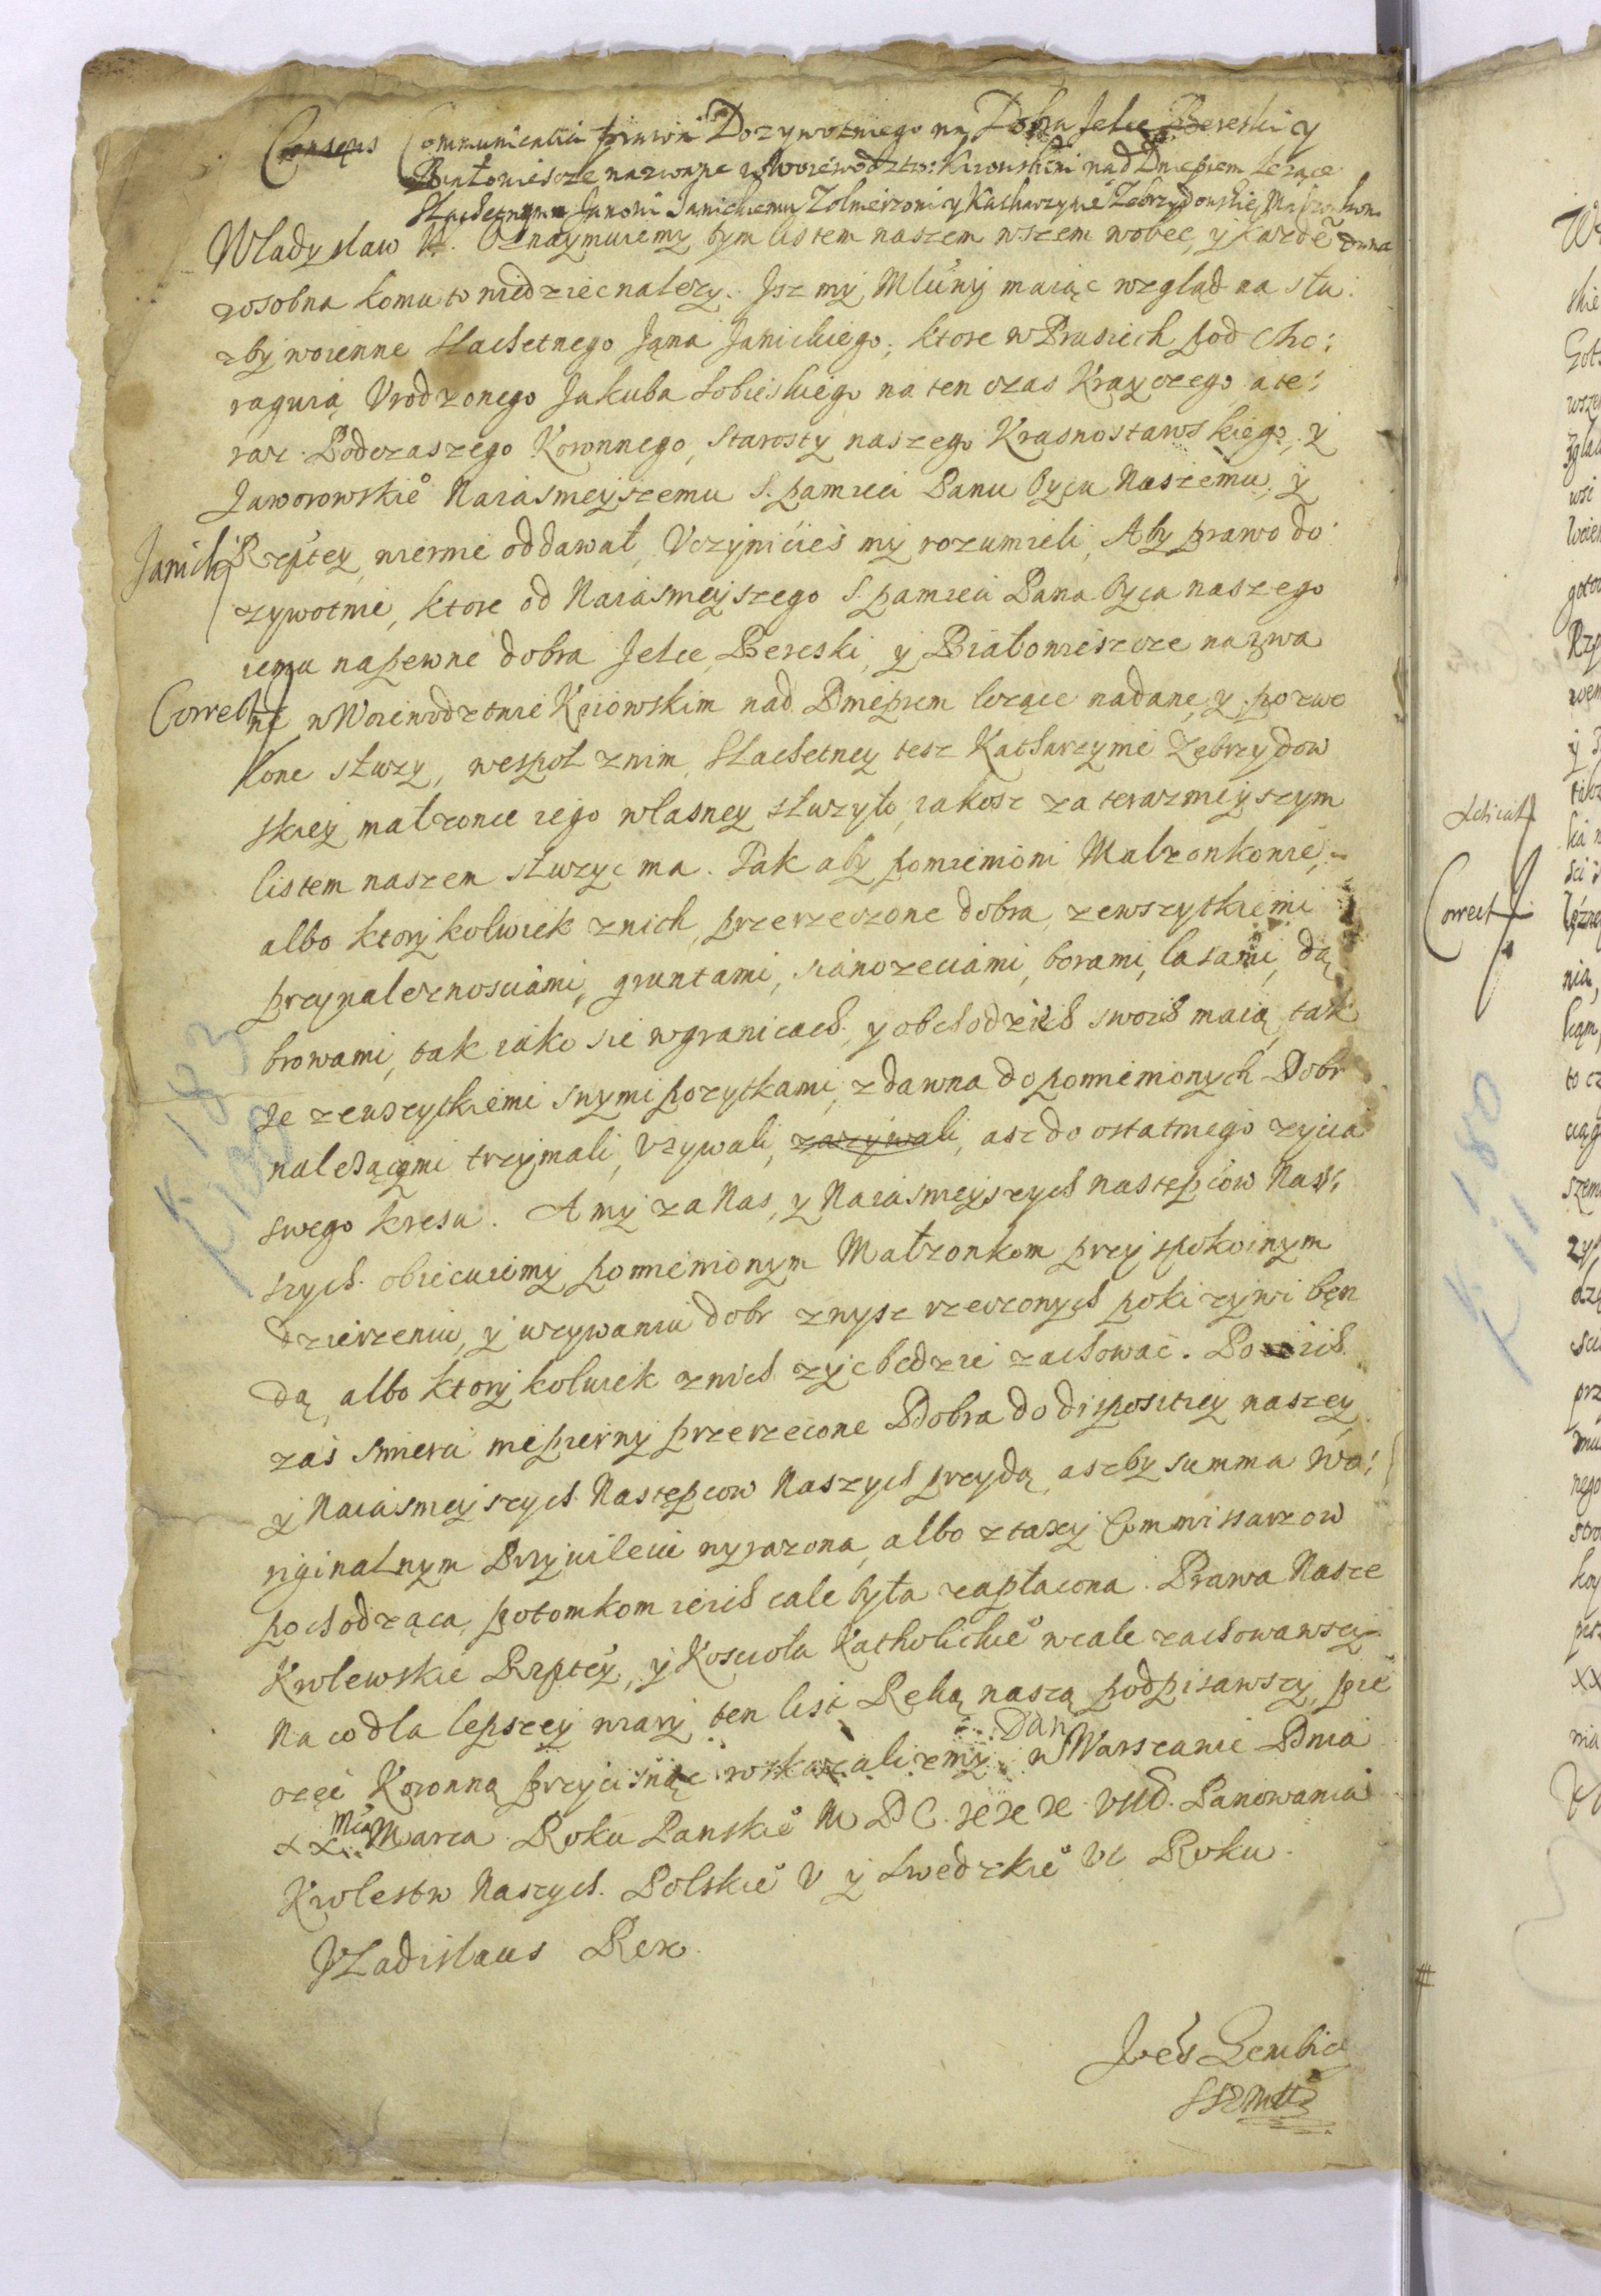 Consens Communicatii prawa Dozywotniego na Dobra Jelce Bereski y
Białomieszcze nazwane w Woiewodztw: Kiiowskim nad Dnieprem leżące
Slachetnym Janowi Janickiemu Zołnierzowi y Katharzynie Zebrzydowskiey Małzonkom
Wladyslaw IV. Oznaymuiemy tym listem naszem wszem wobec, y kazdeo
zosobna komu to wiedziec nalezy. Isz my Mciwy maiąc wzgląd na słu:
zby woienne slachetnego Jana Janickiego, ktore w Prusiech pod Cho:
rągwią Vrodzonego Jakuba Sobieskiego na ten czas Krayczego a te:
raz Podczaszego Koronnego, Starosty naszego Krasnostawskiego, y
Jaworowskieo Naiasnieyszemu S. pamieci Panu Oycu Naszemu, y
Janick
Rzptey, wiernie oddawał, Vczynicies my rozumieli, Aby prawo do:
zywotnie, ktore od Naiasnieyszego S. pamieci Pana Oyca naszego
iemu na pewne dobra Jelce, Bereski, y Białomieszcze nazwa
Correct
ne w Woiewodztwie Kiiowskim nad Dnieprem lezące nadane, y pozwo
lone słuzy, wespoł znim, Slachetney tesz Katharzynie Zebrzydow
skiey małzonce iego własney słuzyło, iakosz za teraznieyszym
listem naszem słuzyc ma. Tak aby pomienioni Malzonkowie,
albo ktory kolwiek znich, przerzeczone dobra, zewszytkiemi
przynaleznosciami, gruntami, sianozeciami, borami, lasami, dą
browami, tak iako sie wgranicach, y obchodziech swoich maią, tak
ze zewszytkiemi inymi pozytkami, zdawna do pomienionych Dobr
nalezącymi trzymali, Vzywali, zazywali, asz do ostatniego zycia
swego kresu. A my za Nas, y Naiasnieyszych nastepcow Nas:
szych obiecuiemy pomienionym Małzonkom przy spokoinym
dzierzeniu, y uzywaniu dobr zwysz rzeczonych poki zywi będ
dą, albo ktory kolwiek znich zyc bedzie zachować. Po ich
zas smierci niepierwy przerzeczone Dobra do dispositiey naszey,
y Naiasnieyszych Nastepcow Naszych przydą, aszby summa wo:
riginalnym Przywileiu wyrazona, albo ztaxy Commissarzow
pochodząca, potomkom ieich cale była zapłacona. Prawa Nasze
Krolewskie Rzptey, y Koscioła Katholickieo wcale zachowawszy
Na co dla lepszey wiary, ten list Ręką naszą podpisawszy, pie
częć Koronną przycisnąć roskazalismy. Dan w Warszawie Dnia
XX Mca Marca Roku Panskieo M D C XXX VIII. Panowania
Krolestw Naszych Polskieo V y Swedzkieo VI Roku.
Vladislaus Rex
K. 183
K. 180